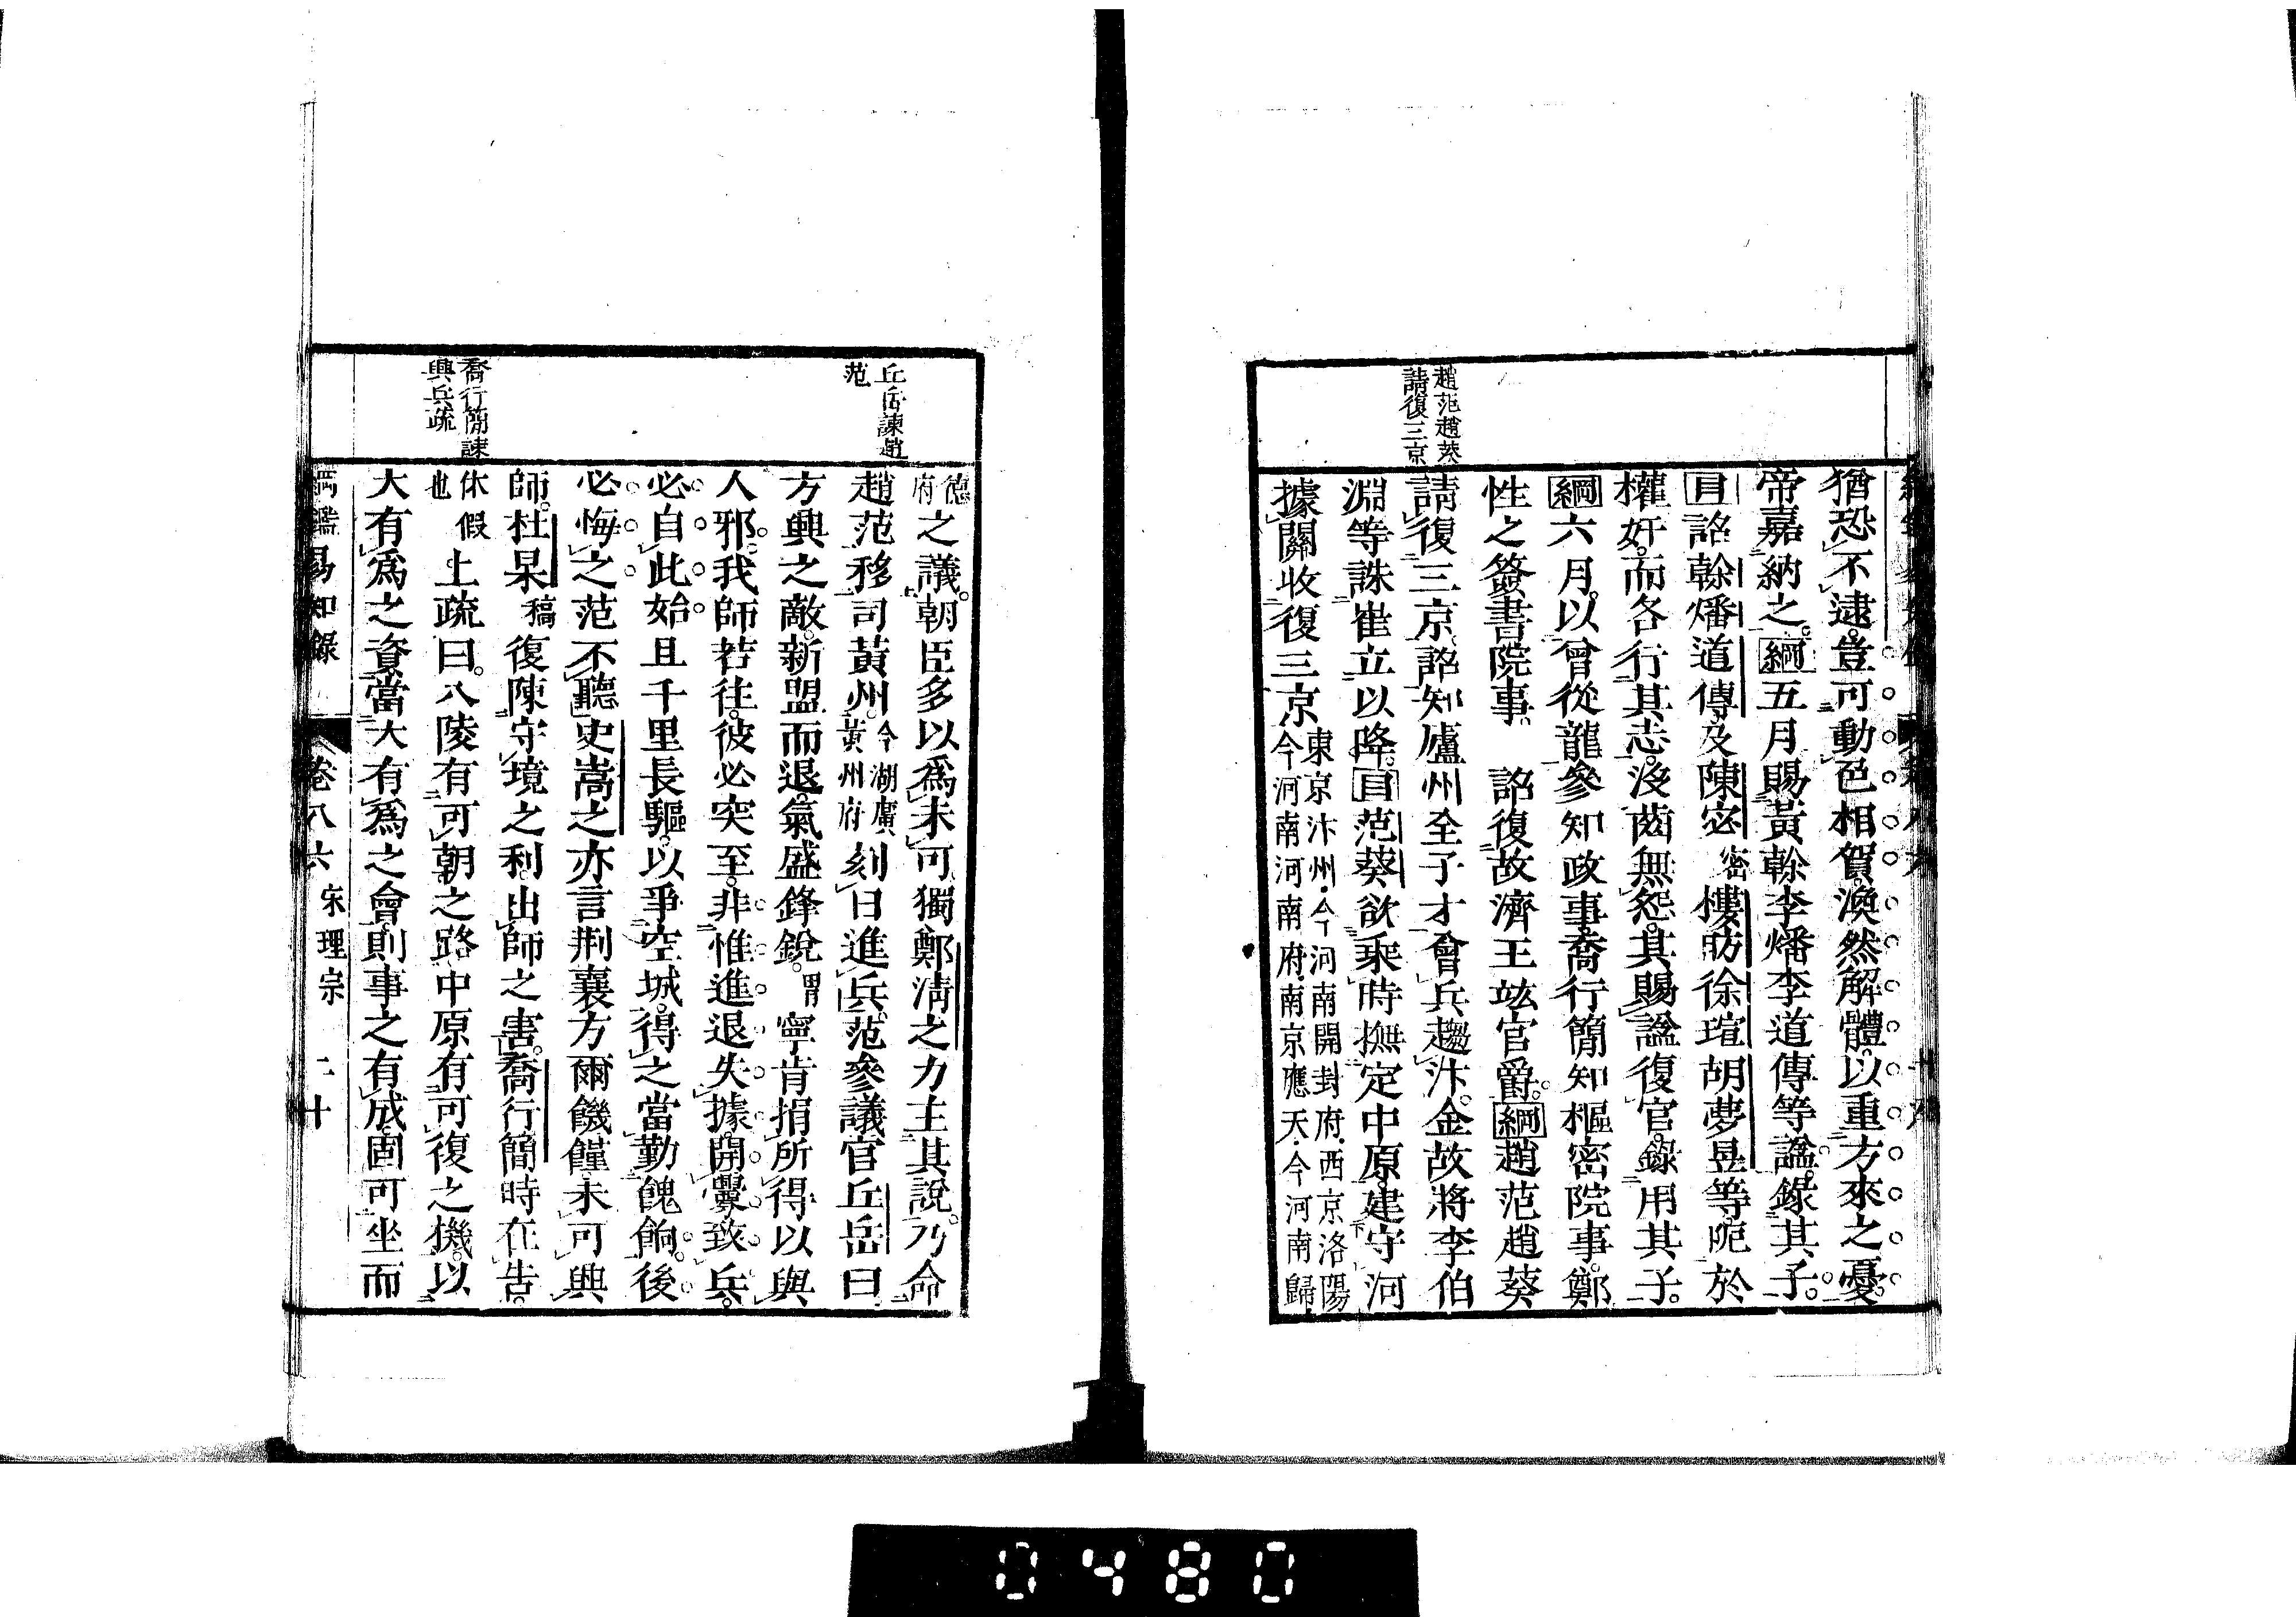 趙范趙葵
請復三京
猶恐不逮。豈可動色相賀。渙然解體。以重方來之憂。
帝嘉納之。綱五月賜黃榦李燔李道傳等諡。錄其子。
目詔榦燔道傳及陳宓密樓昉徐瑄胡夢昱等。阨於
權奸。而各行其志。沒齒無怨。其賜諡復官。錄用其子。
綱六月。以曾從龍參知政事。喬行簡知樞密院事。鄭
性之簽書院事。 詔復故濟王竑官爵。綱趙范趙葵
請復三京。詔知廬州全子才會兵趨汴。金故將李伯
淵等誅崔立以降。目范葵欲乘時撫定中原。建守河
據關收復三京東京汴州今河南開封府西京洛陽
今河南河南府南京應天今河南歸
丘岳諫趙
范
喬行簡諫
興兵疏
德
府之議。朝臣多以爲未可。獨鄭淸之力主其說。乃命
趙范移司黃州。今湖廣
黃州府刻日進兵。范參議官丘岳曰
方興之敵。新盟而退。氣盛鋒銳。胃寧肯捐所得以與
人邪。我師若往。彼必突至。非惟進退失據。開釁致兵。
必自此始。且千里長驅。以爭空城。得之當勤餽餉。後
必悔之。范不聽。史嵩之亦言荆襄方爾饑饉。未可興
師。杜杲稿復陳守境之利。出師之害。喬行簡時在吿。
休假
也上疏曰。八陵有可朝之路。中原有可復之機。以
大有爲之資。當大有爲之會。則事之有成。固可坐而
綱鑑易知錄 卷八六 宋理宗 二十
0480